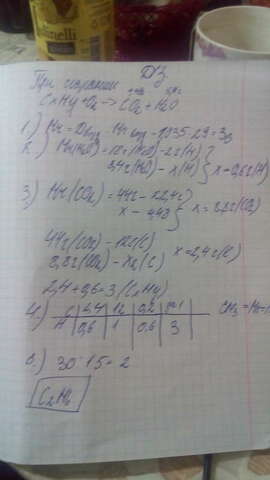 ДЗ.
При сгорании
CxHy + O2 -> CO2 + H2O
1.) Mr = Dвозд · Mr возд = 1,035·29 = 30
2.) Mr(H2O) = 18г(H2O) - 2г(H)
5,4г(H2O) - x(H) } x = 0,6г(H)
3.) Mr(CO2) = 44г -
x - 44г } x = 8,8г(CO2)
44г(CO2) - 12г(C)
8,8г(CO2) - x(C) x = 2,4г(C)
2,4 + 0,6 = 3 (CxHy)
4.) C 2,4 12 0,2 1
H 0,6 1 0,6 3
CH3 = Mr =
30:15 = 2
C2H6